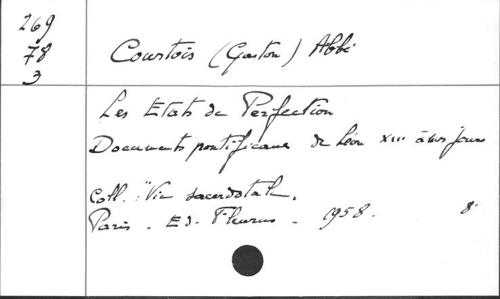 269
78
3
Courtois (Gaston) Abbé
Les Etats de Perfection
Documents pontificaux de Léon XIII à nos jours
Coll. : "Vie sacerdotale.
Paris - Ed. Fleurus - 1958. 8°